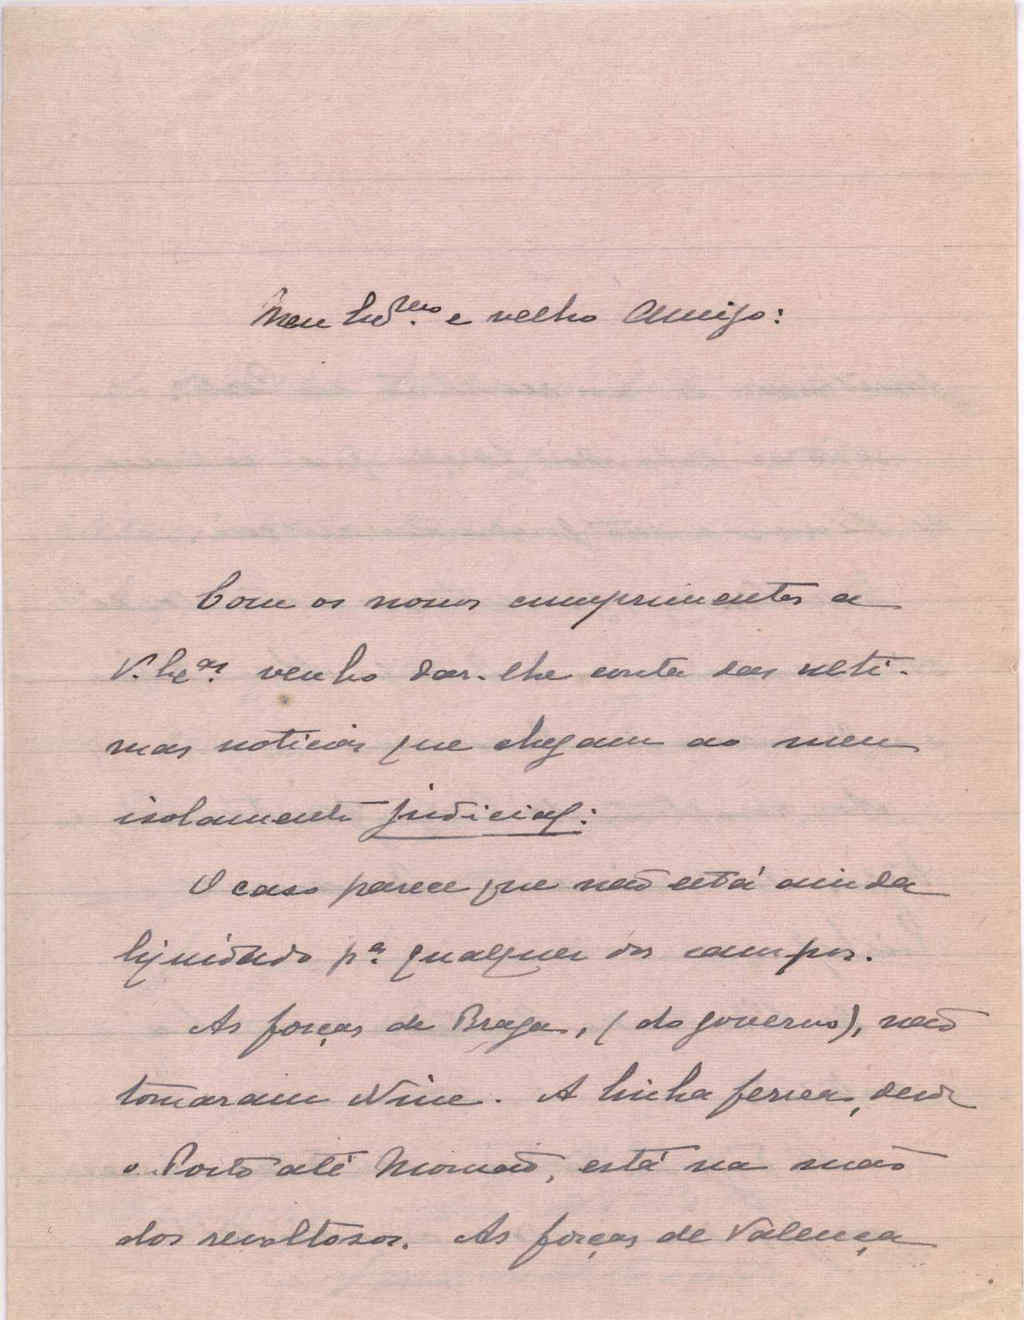 Meu Ind.mo e velho Amigo:
Com os nossos cumprimentos a
V. Ex.as venho dar-lhe conta das ulti-
mas noticias que chegam ao meu
isolamento judicial:
O caso parece que não está ainda
liquidado p.a qualquer dos campos.
As forças de Braga, (do governo), não
tomaram Nine. A linha ferrea, desde
o Porto até Monsão, está na mão
dos revoltosos. As forças de Valença